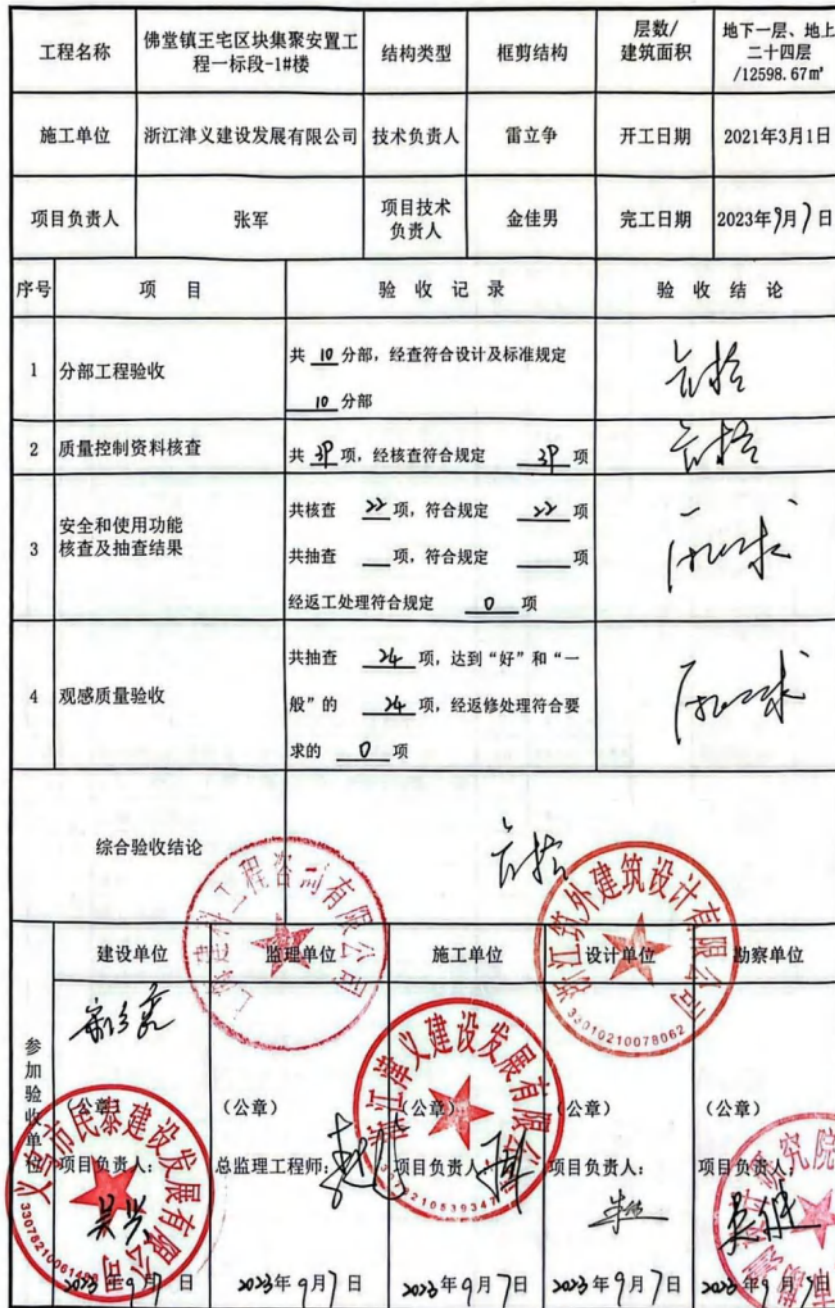 工程名称 佛堂镇王宅区块集聚安置工程一标段-1#楼 结构类型 框剪结构 层数/建筑面积 地下一层、地上二十四层/12598.67㎡
施工单位 浙江津义建设发展有限公司 技术负责人 雷立争 开工日期 2021年3月1日
项目负责人 张军 项目技术负责人 金佳男 完工日期 2023年9月7日
序号 项 目 验 收 记 录 验 收 结 论
1 分部工程验收 共 10 分部，经查符合设计及标准规定
10 分部
合格
2 质量控制资料核查 共 39 项，经核查符合规定 39 项 合格
3 安全和使用功能
核查及抽查结果
共核查 22 项，符合规定 22 项
共抽查 项，符合规定 项
经返工处理符合规定 0 项
4 观感质量验收
共抽查 24 项，达到“好”和“一
般”的 24 项，经返修处理符合要
求的 0 项
综合验收结论 合格
参加验收单位
建设单位 监理单位 施工单位 设计单位 勘察单位
（公章） （公章） （公章） （公章） （公章）
项目负责人： 总监理工程师： 项目负责人： 项目负责人： 项目负责人：
2023年9月7日 2023年9月7日 2023年9月7日 2023年9月7日 2023年9月7日
工程咨询有限公司
浙江筑外建筑设计有限公司
33010210078062
浙江津义建设发展有限公司
义乌市民泰建设发展有限公司
研究院